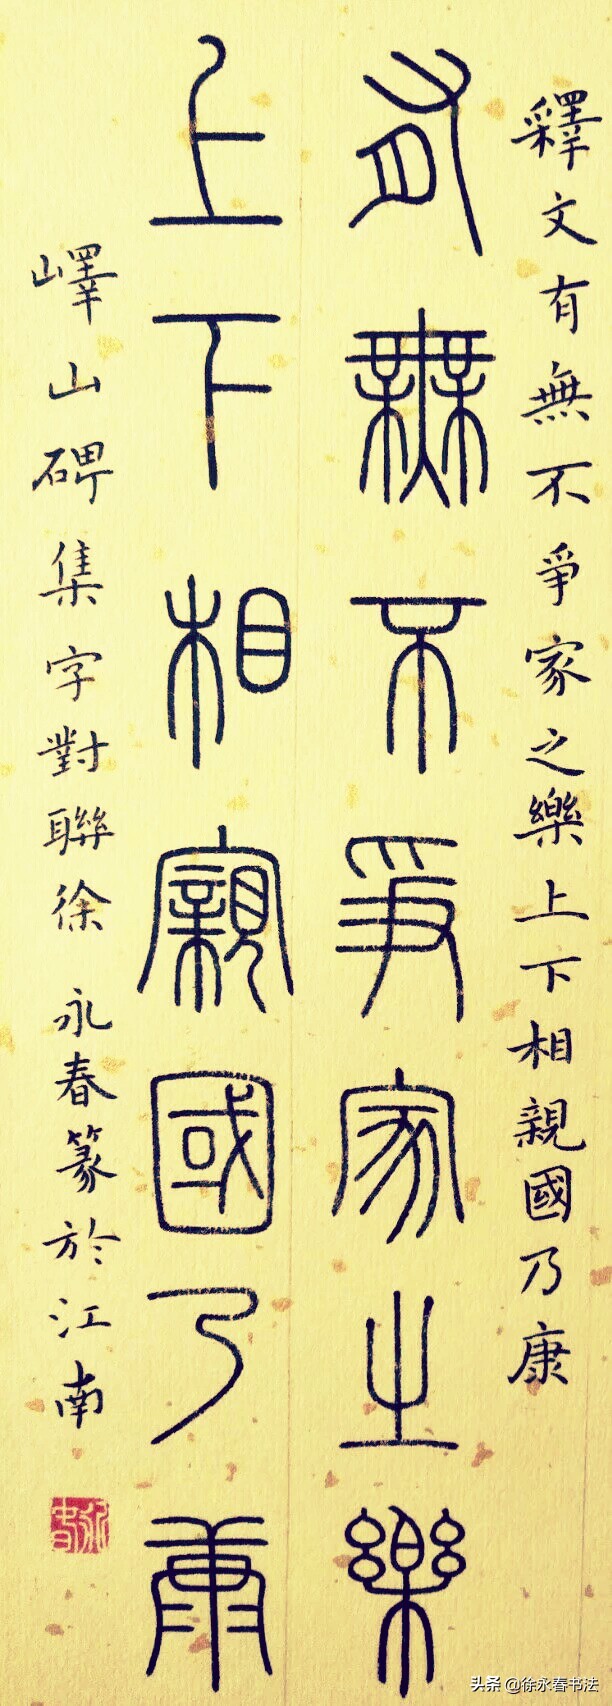 釋文有無不爭家之樂上下相親國乃康
有無不爭家之樂
上下相親國乃康
嶧山碑集字對聯徐永春篆於江南
永春
头条@徐永春书法